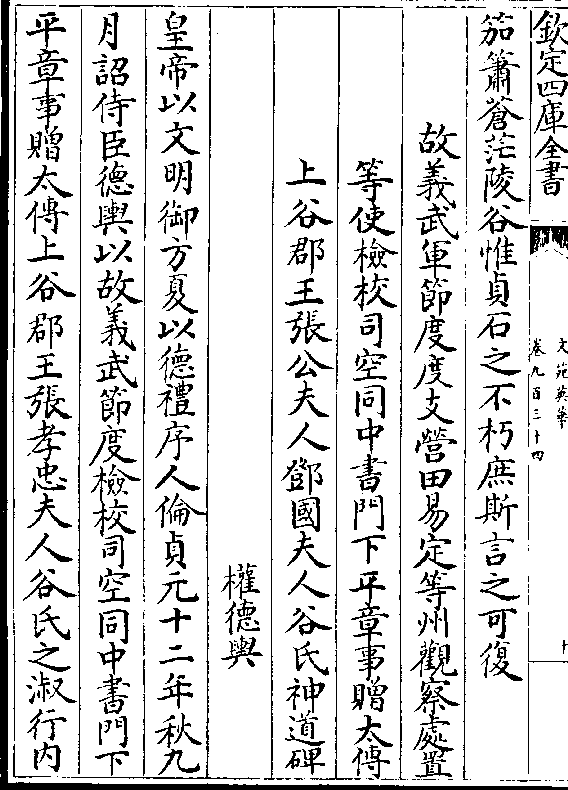 欽定四庫全書
文苑英華
卷九百三十四
笳簫蒼茫陵谷惟貞石之不朽庶斯言之可復
故義武軍節度度支營田易定等州觀察處置
等使檢校司空同中書門下平章事贈太傅
上谷郡王張公夫人鄧國夫人谷氏神道碑
權德輿
皇帝以文明御方夏以德禮序人倫貞元十二年秋九
月詔侍臣德輿以故義武節度檢校司空同中書門下
平章事贈太傅上谷郡王張孝忠夫人谷氏之淑行内